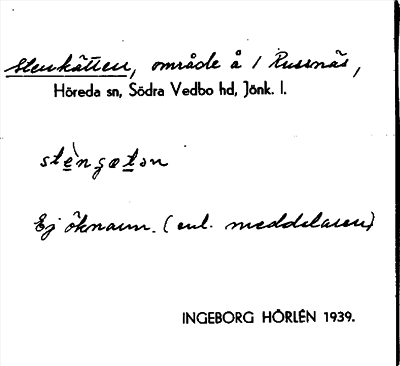 Stenkätten, område å / Russnäs,
Höreda sn, Södra Vedbo hd, Jönk. l.
stènɕætən
Ej öknamn. (enl. meddelaren)
INGEBORG HÖRLÉN 1939.